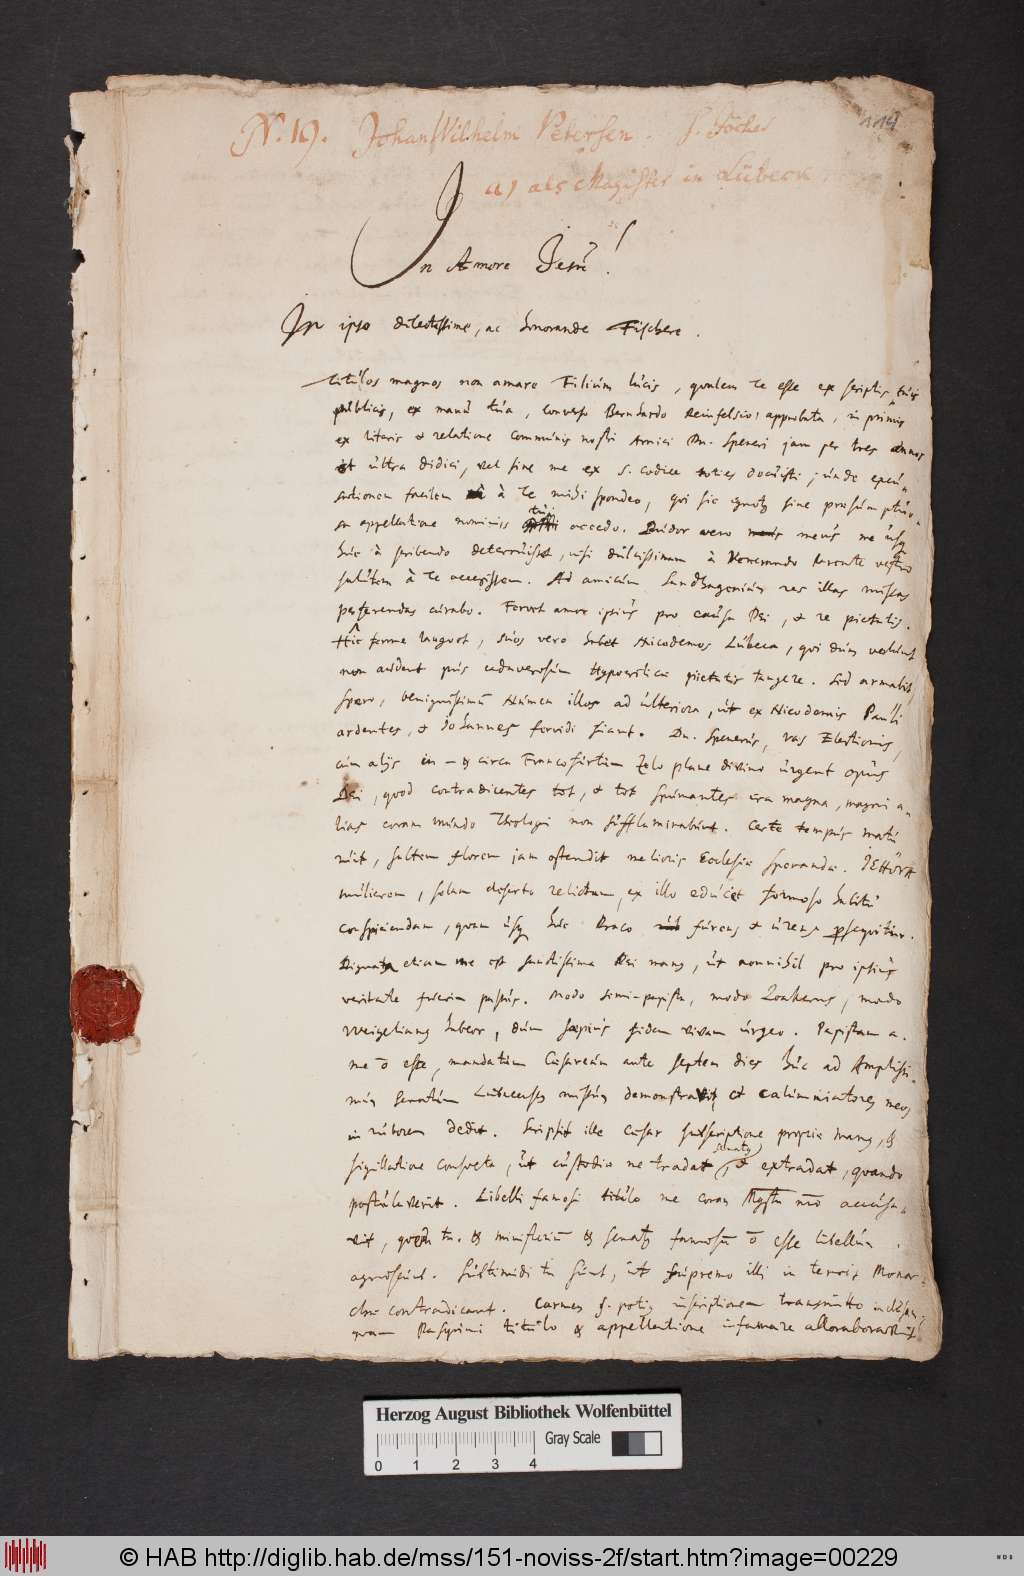 N. 19. Johan Wilhelm Petersen. S. Jöcher
114
a) als Magister in Lübeck
In Amore Jesu!
In ipso dilectissime, ac honorande Fischere.
titulos magnos non amare Filium lucis, qualem te esse ex scriptis tuis
publicis, ex manu tua, converso Bernhardo approbata, in primis
ex literis et relatione communis nostri Amici Dn. Speneri jam per tres annos
et ultra didici, vel sine me ex S. codice toties docuisti; unde excu-
sationem facilem à te mihi spondeo, qui sic sine
appellatione nominis tui accedo. Pudor vero meus me usq
huc à scribendo deterruisset, nisi dulcissimam à Venerando Parente vestro
salutem à te accepissem. Ad amicum Sandhagenium res illas missas
perferendas curabo. Fervet amor ipsius pro causa Dei, et re pietatis.
Hic ferme languet, suos vero habet Nicodemos Lubeca, qui dum verbum
non audent pus cadaverosum Hypocriticae pietatis tangere. Sed armabit,
spero, benignissimum Numen illos ad ulteriora, ut ex Nicodemis Pauli
ardentes, et Johannes fervidi fiant. Dn. Spenerus, vas Electionis,
cum alijs in - et circa Francofurtum zelo plane divino urgent opus
Dei, quod contradicentes tot, et tot spumantes ora magna, magni a-
lias coram mundo Theologi non sufflaminabunt. Certe tempus matu
ruit, saltem florem jam ostendit melioris Ecclesiae sperandae. JEHOVA
mulierem, solam deserto relictam, ex illo educet formoso habitu
conspiciendam, quam usq huc Draco furens et urens persequitur.
Dignata etiam me est sanctissima Dei manus, ut nonnihil pro ipsius
veritate fuerim passus. Modo semi-papista, modo Quakerus, modo
Weigelianus habeor, dum saepius fidem vivam urgeo. Papistam a.
me o esse, mandatum Caesareum ante septem dies huc ad Amplissi-
mum Senatum Lubecensem missum demonstravit et calumniatores meos
in ruborem dedit. Scripsit ille Caesar subscriptione propria manus, et
sigillatione consueta, ut custodiae me tradat senatus, et extradat, quando
postulaverit. Libelli famosi titulo me coram Mgstr. accusa-
vit, quem tn. et ministerium et senatus famosum o esse libellum
agnoscunt. Subtimidi tn sunt, ut supremo illi in terris Monar-
chae contradicant. Carmen s. potius inscriptionem transmitto
quam Pasquini titulo et appellatione infamare allaborarunt
Herzog August Bibliothek Wolfenbüttel
Gray Scale
0 1 2 3 4
© HAB http://diglib.hab.de/mss/151-noviss-2f/start.htm?image=00229